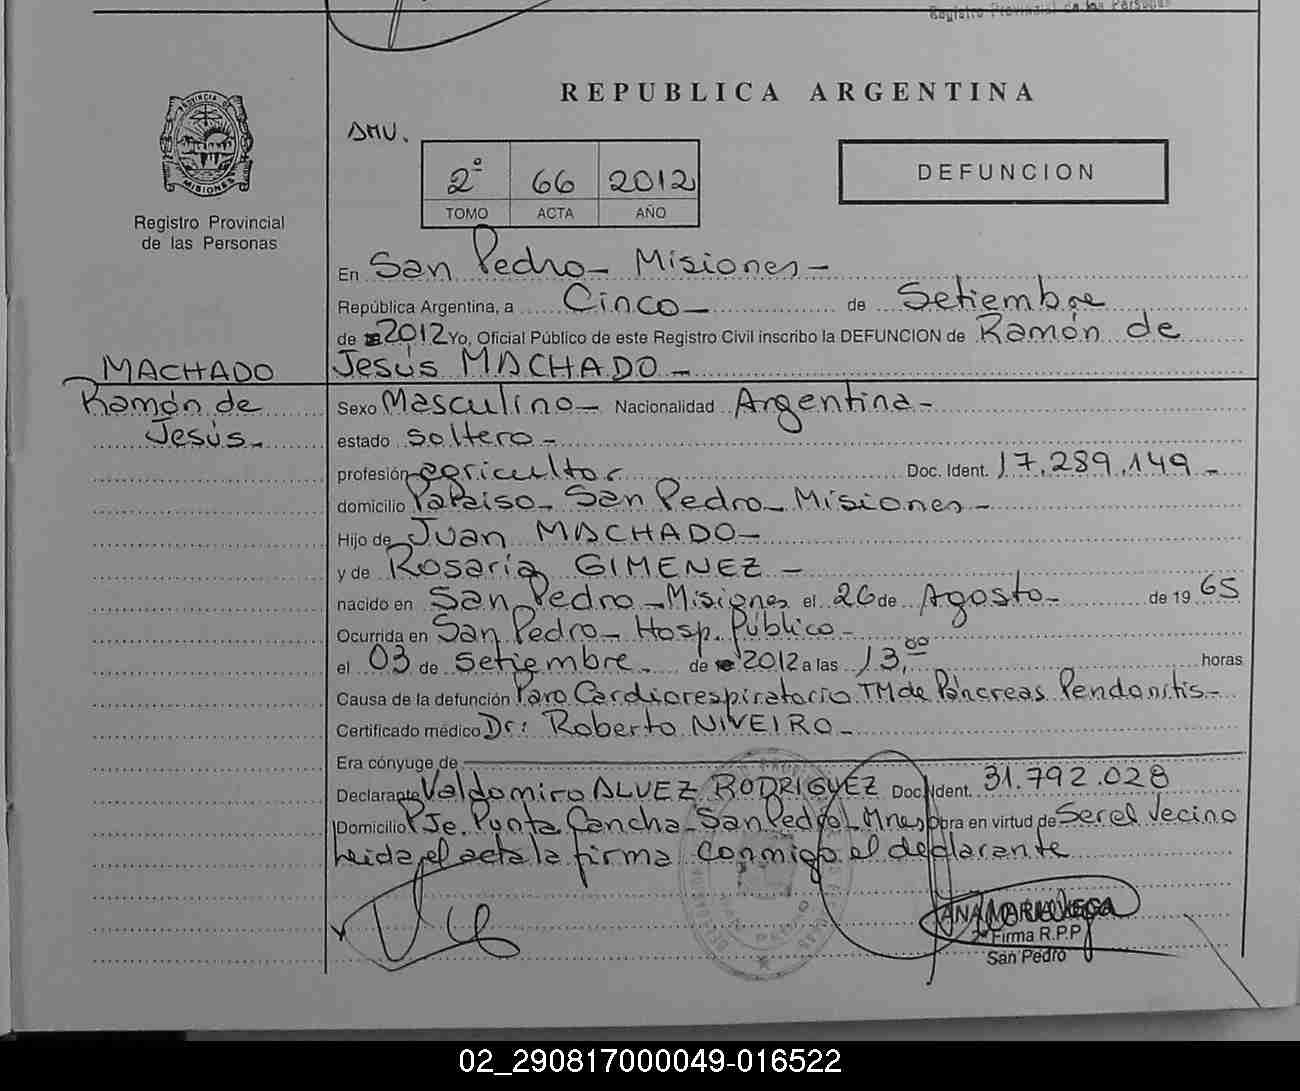 Registro Provincial de las Personas
REPUBLICA ARGENTINA
PROVINCIA DE
MISIONES
Registro Provincial
de las Personas
DMU.
2º 66 2012
TOMO ACTA AÑO
DEFUNCION
En San Pedro - Misiones -
República Argentina, a Cinco - de Setiembre
de 2012 Yo, Oficial Público de este Registro Civil inscribo la DEFUNCION de Ramón de
Jesús MACHADO -
MACHADO
Ramón de
Jesús -
Sexo Masculino - Nacionalidad Argentina -
estado soltero -
profesión agricultor Doc. Ident. 17.289.149 -
domicilio Paraiso - San Pedro - Misiones -
Hijo de Juan MACHADO -
y de Rosaria GIMENEZ -
nacido en San Pedro - Misiones el 26 de Agosto - de 19 65
Ocurrida en San Pedro - Hosp. Público -
el 03 de Setiembre - de 2012 a las 13,00 horas
Causa de la defunción Paro Cardiorespiratorio TM de Páncreas
Certificado médico Dr: Roberto NIVEIRO -
Era cónyuge de
Declarante Valdomiro ALVEZ RODRIGUEZ Doc. Ident. 31.792.028
Domicilio Pje. Punta Cancha - San Pedro - Mnes obra en virtud de Ser el Vecino
Leida el acta la firma conmigo el declarante
ANA MARIA VEGA
2ª Firma R.P.P
San Pedro
02_290817000049-016522